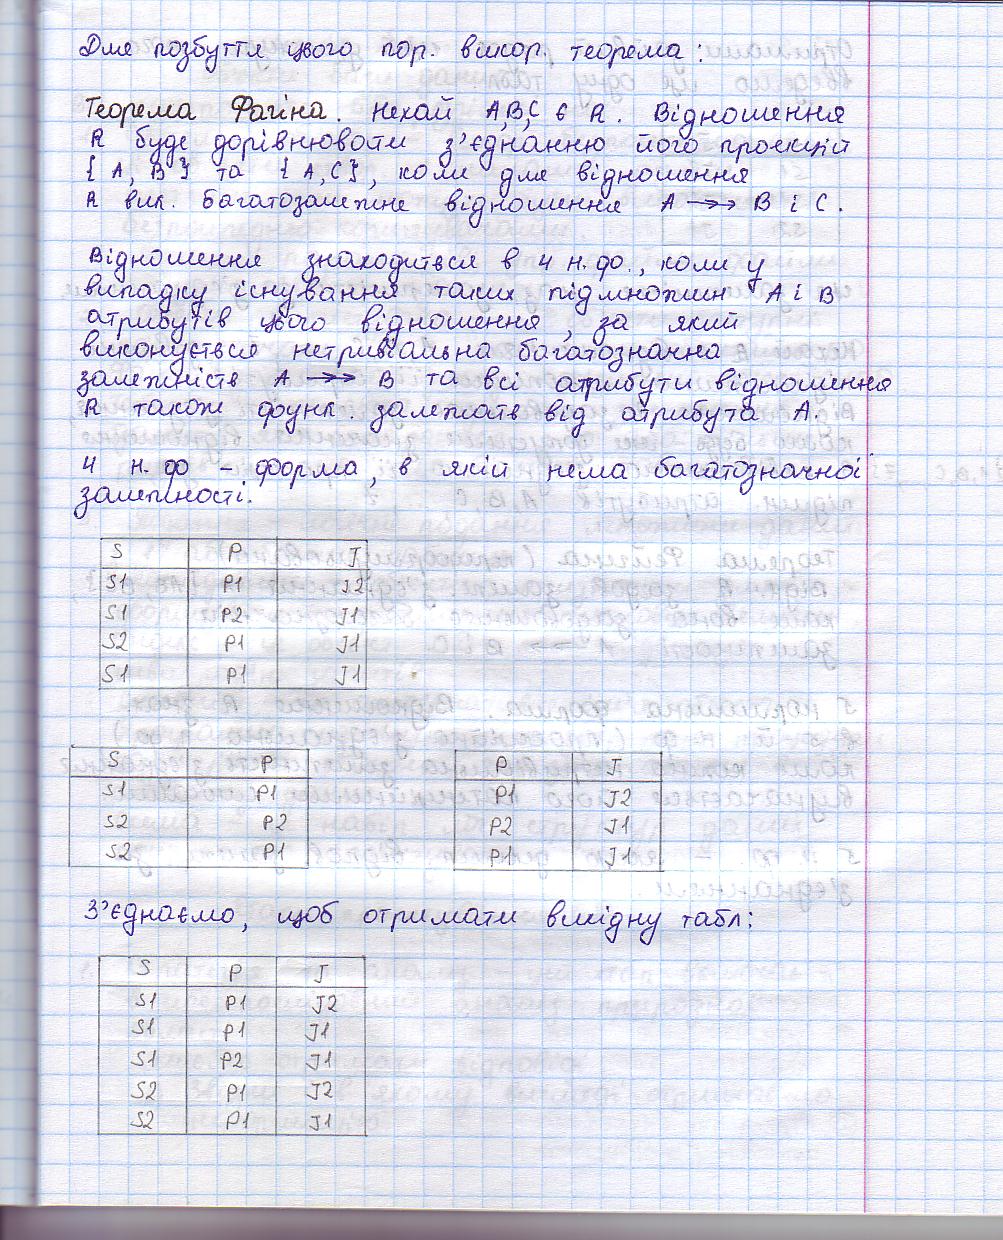 Для позбуття цього пор. викор. теорема:
Теорема Фагіна. Нехай A,B,C є R. Відношення
R буде дорівнювати з'єднанню його проекцій
{A, B} та {A,C}, коли для відношення
R вик. багатозалежне відношення A →→ B і C.
Відношення знаходиться в 4 н.ф., коли у
випадку існування таких підмножин A і B
атрибутів цього відношення, за який
виконується нетривіальна багатозначна
залежність A →→ B та всі атрибути відношення
R також функ залежать від атрибута A.
4 н.ф - форма, в якій нема багатозначної
залежності.
S P J
S1 P1 J2
S1 P2 J1
S2 P1 J1
S1 P1 J1
S P
S1 P1
S2 P2
S2 P1
P J
P1 J2
P2 J1
P1 J1
З'єднаємо, щоб отримати вихідну табл:
S P J
S1 P1 J2
S1 P1 J1
S1 P2 J1
S2 P1 J2
S2 P1 J1